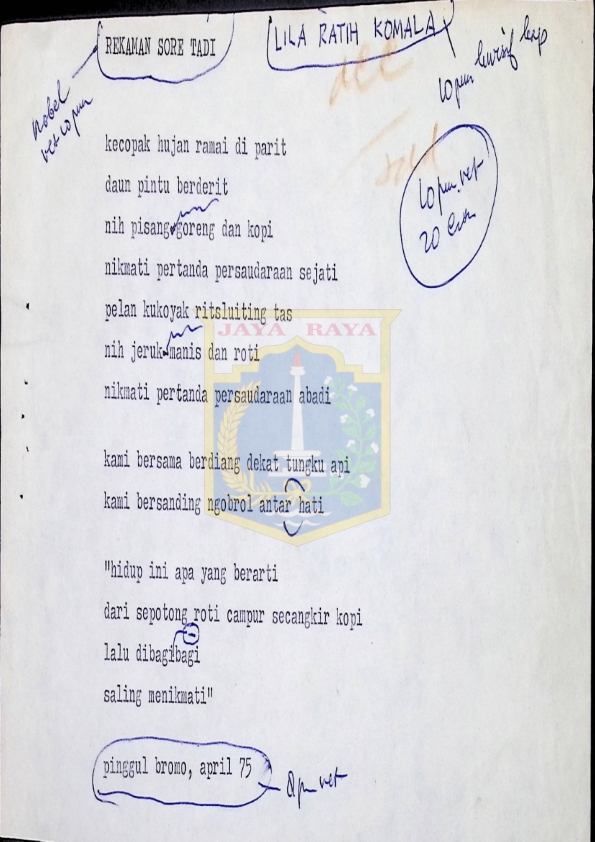 REKAMAN SORE TADI
LILA RATIH KOMALA
nobel
vet 10 pun
10 pun kursif kap
10 pun vet
20 Cic
kecopak hujan ramai di parit
daun pintu berderit
nih pisang goreng dan kopi
nikmati pertanda persaudaraan sejati
pelan kukoyak ritsluiting tas
JAYA RAYA
nih jeruk manis dan roti
nikmati pertanda persaudaraan abadi
kami bersama berdiang dekat tungku api
kami bersanding ngobrol antar hati
"hidup ini apa yang berarti
dari sepotong roti campur secangkir kopi
lalu dibagibagi
saling menikmati"
pinggul bromo, april 75
8 pun vet